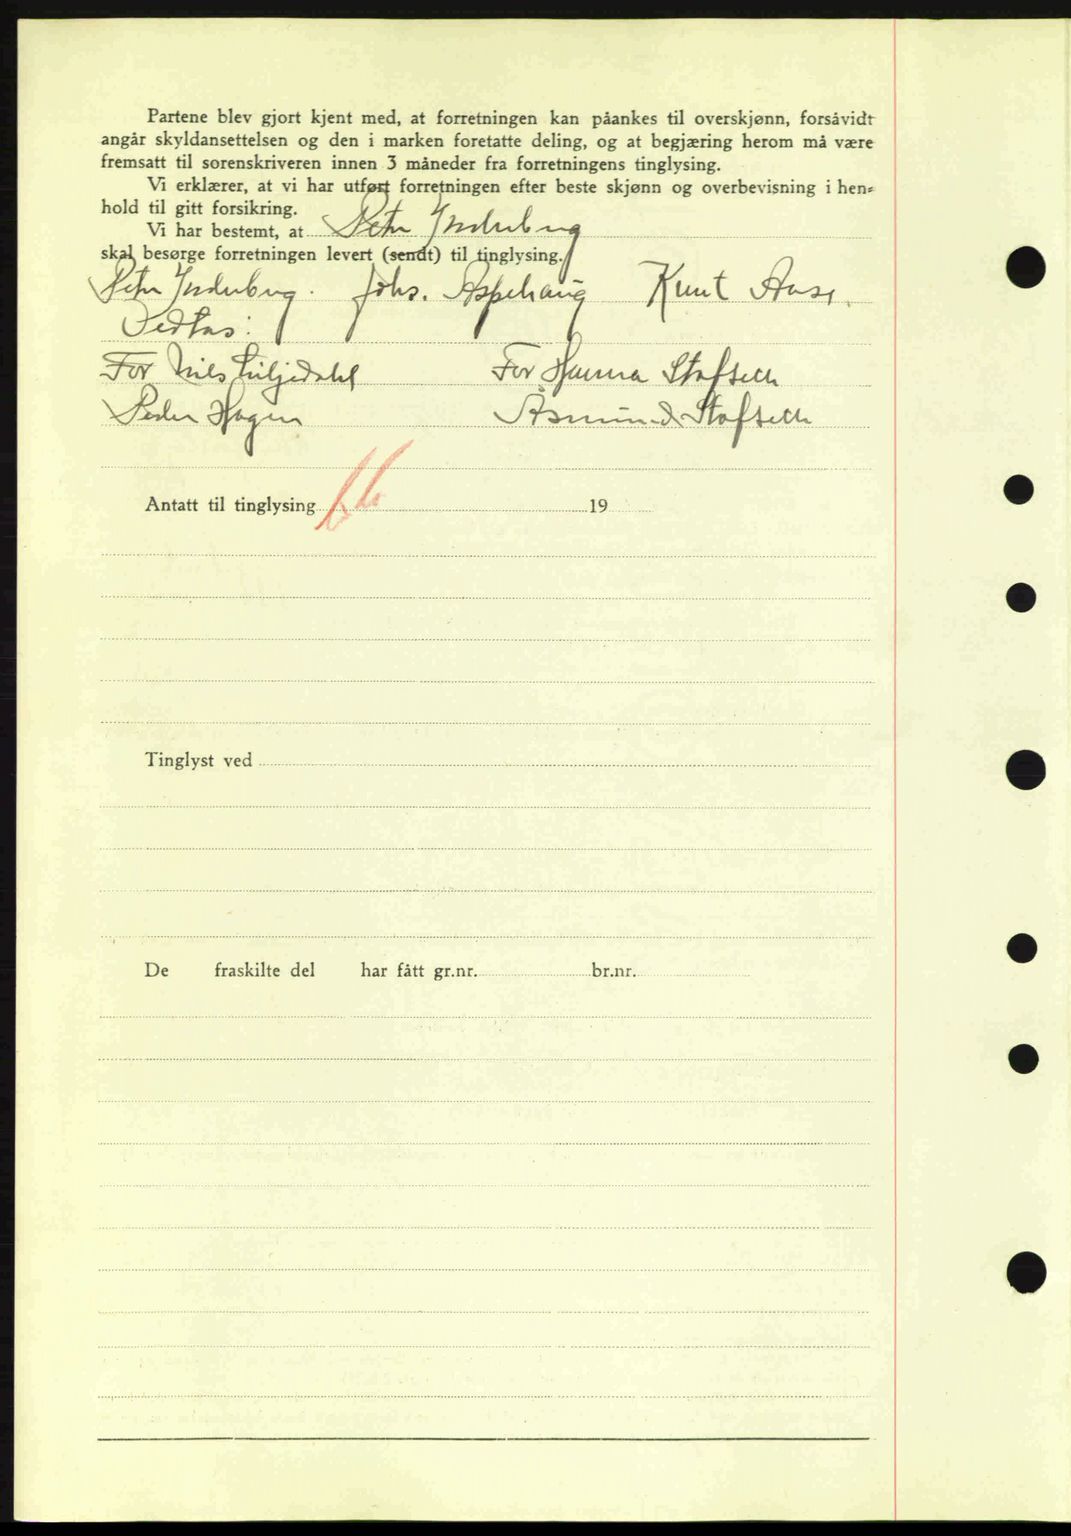 Partene blev gjort kjent med, at forretningen kan påankes til overskjønn, forsåvidt
angår skyldansettelsen og den i marken foretatte deling, og at begjæring herom må være
fremsatt til sorenskriveren innen 3 måneder fra forretningens tinglysing.
Vi erklærer, at vi har utført forretningen efter beste skjønn og overbevisning i hen=
hold til gitt forsikring.
Vi har bestemt, at Petr Inderberg
skal besørge forretningen levert (sendt) til tinglysing.
Petr Inderberg. Johs. Aspehaug Knut Aase.
Vedtas:
For Nils Liljedahl For Hanna Stafseth
Peder Hagen Åsmund Stafseth
Antatt til tinglysing 19
Tinglyst ved
De fraskilte del har fått gr.nr. br.nr.